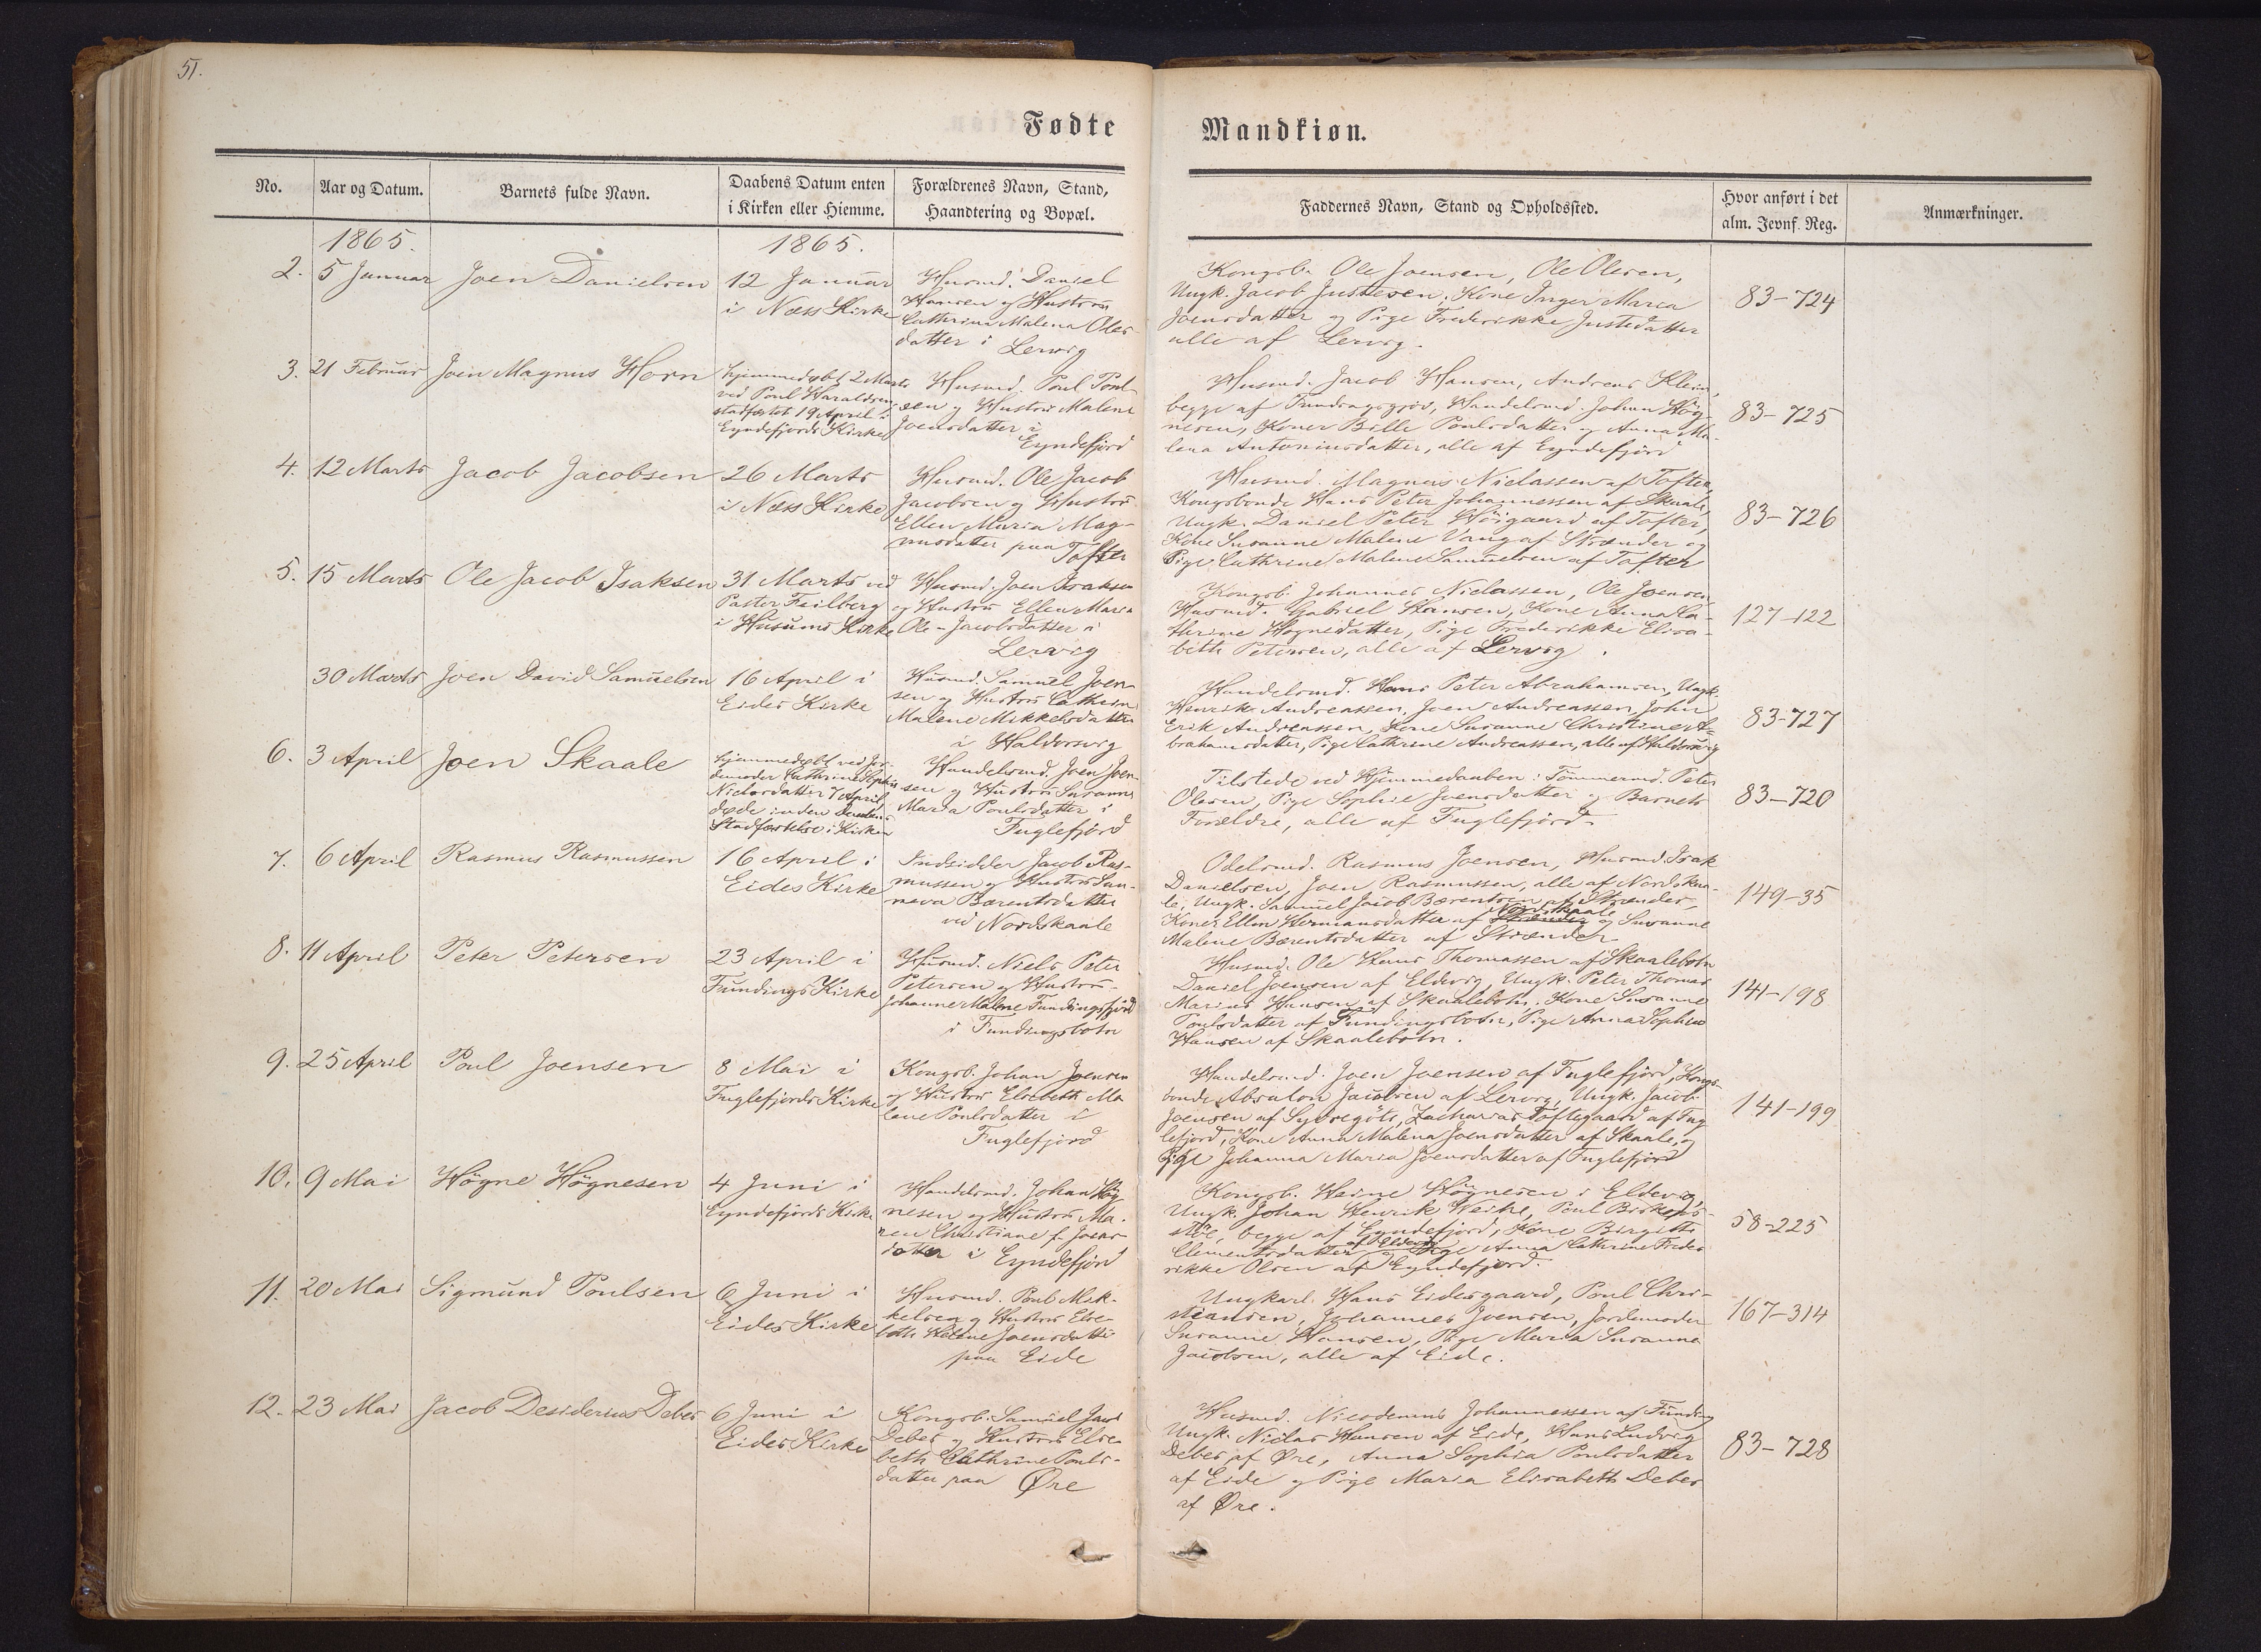 51.
Fødte
Mandkiøn.
No.
Aar og Datum.
Barnets fulde Navn.
Daabens Datum enten
i Kirken eller Hiemme.
Forældrenes Navn, Stand,
Haandtering og Bopæl.
Faddernes Navn, Stand og Opholdssted.
Hvor anført i det
alm. Jevnf. Reg.
Anmærkninger.
1865.
1865.
2.
5 Januar
Joen Danielsen
12 Januar
i Næss Kirke
Husmd. Daniel
Hansen og Hustru
Cathrina Malena Oles-
datter i
Lervig
Kongsb. Ole Joensen, Ole Olesen,
Ungk. Jacob Justesen, Kone Inger Maria
Joensdatter og Pige Frederikke Justedatter
alle af Lervig.
83-724
3.
21 Februar
Joen Magnus Horn
hjemmedøbt 2 Marts
ved Poul Haraldsen
stadfæstet 19 April i
Eyndefjords Kirke
Husmd. Poul Poul-
sen og Hustru Malene
Joensdatter i
Eyndefjord
Husmd. Jacob Hansen, Andreas Klein,
begge af Fundingsgjov, Handelsmd. Johan Høg-
nesen, Koner Bille Poulsdatter og Anna Ma-
lena Antoniusdatter, alle af Eyndefjord
83-725
4.
12 Marts
Jacob Jacobsen
26 Marts
i Næss Kirke
Husmd. Ole Jacob
Jacobsen og Hustru
Ellen Maria Mag-
nusdatter paa Tofter
Husmd. Magnus Niclassen af Tofter,
Kongsbonde Hans Peter Johannessen af Skaale,
Ungk. Daniel Peter Høigaard af Tofter,
Kone Susanne Malene Vang af Strænder og
Pige Cathrine Malene Samuelsen af Tofter
83-726
5.
15 Marts
Ole Jacob Isaksen
31 Marts ved
Pastor Feilberg
i Husums Kirke
Husmd. Joen Isaksen
og Hustru Ellen Maria
Ole-Jacobsdatter i
Lervig
Kongsb. Johannes Niclassen, Ole Joensen,
Husmd. Gabriel Hansen, Kone Anna Ca-
thrine Høgnedatter, Pige Frederikke Elisa-
beth Petersen, alle af Lervig.
127-122
30 Marts
Joen David Samuelsen
16 April i
Eides Kirke
Husmd. Samuel Joen-
sen og Hustru Cathrine
Malene Mikkelsdatter
i Haldersvig
Handelsmd. Hans Peter Abrahamsen, Ungk.
Henrik Andreassen, Joen Andreassen, John
Erik Andreassen, Kone Susanne Christine A-
brahamsdatter, Pige Cathrine Andreassen, alle af Haldersvig
83-727
6.
3 April
Joen Skaale
hjemmedøbt ved Jor-
demoder Cathrine Sophie
Niclasdatter 7 April,
døde inden Daabens
Stadfæstelse i Kirken
Handelsmd. Joen Joen-
sen og Hustru Susanne
Maria Poulsdatter i
Fuglefjord
Tilstede ved Hjemmedaaben: Tømmermd. Peter
Olesen, Pige Sophie Joensdatter og Barnets
Forældre, alle af Fuglefjord
83-720
7.
6 April
Rasmus Rasmussen
16 April i
Eides Kirke
Indsidder Jacob Ras-
mussen og Hustru Sun-
neva Bærentsdatter
ved Nordskaale
Odelsmd. Rasmus Joensen, Husmd. Isak
Danielsen, Joen Rasmussen, alle af Nordskaa-
le, Ungk. Samuel Jacob Bærentsen af Strænder,
Koner Ellen Hermansdatter af Nordskaale og Susanne
Malene Bærentsdatter af Strænder
149-35
8.
11 April
Peter Petersen
23 April i
Fundings Kirke
Husmd. Niels Peter
Petersen og Hustru
Johanne Malene Fundingsfjord
i Fundingsbotn
Husmd. Ole Hans Thomassen af Skaalebotn
Daniel Joensen af Eldevig, Ungk. Peter Thomas
Marius Hansen af Skaalebotn, Kone Susanne
Poulsdatter af Fundingsbotn, Pige Anna Sophie
Hansen af Skaalebotn.
141-198
9.
25 April
Poul Joensen
8 Mai i
Fuglefjords Kirke
Kongsb. Johan Joensen
og Hustru Elsebeth Ma
lene Poulsdatter i
Fuglefjord
Handelsmd. Joen Joensen af Fuglefjord, Kongs-
bonde Absalon Jacobsen af Lervig, Ungk. Jacob
Joensen af Sydregøte, Zacharias Toftegaard af Fug
lefjord, Kone Anna Malena Joensdatter af Skaale, og
Pige Johanna Maria Joensdatter af Fuglefjord
141-199
10.
9 Mai
Høgne Høgnesen
4 Juni i
Eyndefjords Kirke
Handelsmd. Johan Høg
nesen og Hustru Ma-
ren Christiane f. Joens-
datter i Eyndefjord
Kongsb. Heine Høgnesen i Eldevig,
Ungk. Johan Henrik Weihe, Poul
begge af Eyndefjord, Kone Birgitte
Clementsdatter af Eldevig Pige Anna Cathrine Frede
rikke Olsen af Eyndefjord.
58-225
11.
20 Mai
Sigmund Poulsen
6 Juni i
Eides Kirke
Husmd. Poul Mik-
kelsen og Hustru Else-
beth Helene Joensdatter
paa Eide
Ungkarl. Hans Eidesgaard, Poul Chri-
stiansen, Johannes Joensen, Jordemoder
Susanne Hansen, Pige Maria Susanna
Jacobsen, alle af Eide.
167-314
12.
23 Mai
Jacob Desiderius Debes
6 Juni i
Eides Kirke
Kongsb. Samuel Jacob
Debes og Hustru Else-
beth Cathrine Pouls-
datter paa Øre
Husmd. Nicodemus Johannessen af Funding
Ungk. Niclas Hansen af Eide, Hans Ludvig
Debes af Øre, Anna Sophia Poulsdatter
af Eide og Pige Maria Elisabeth Debes
af Øre.
83-728